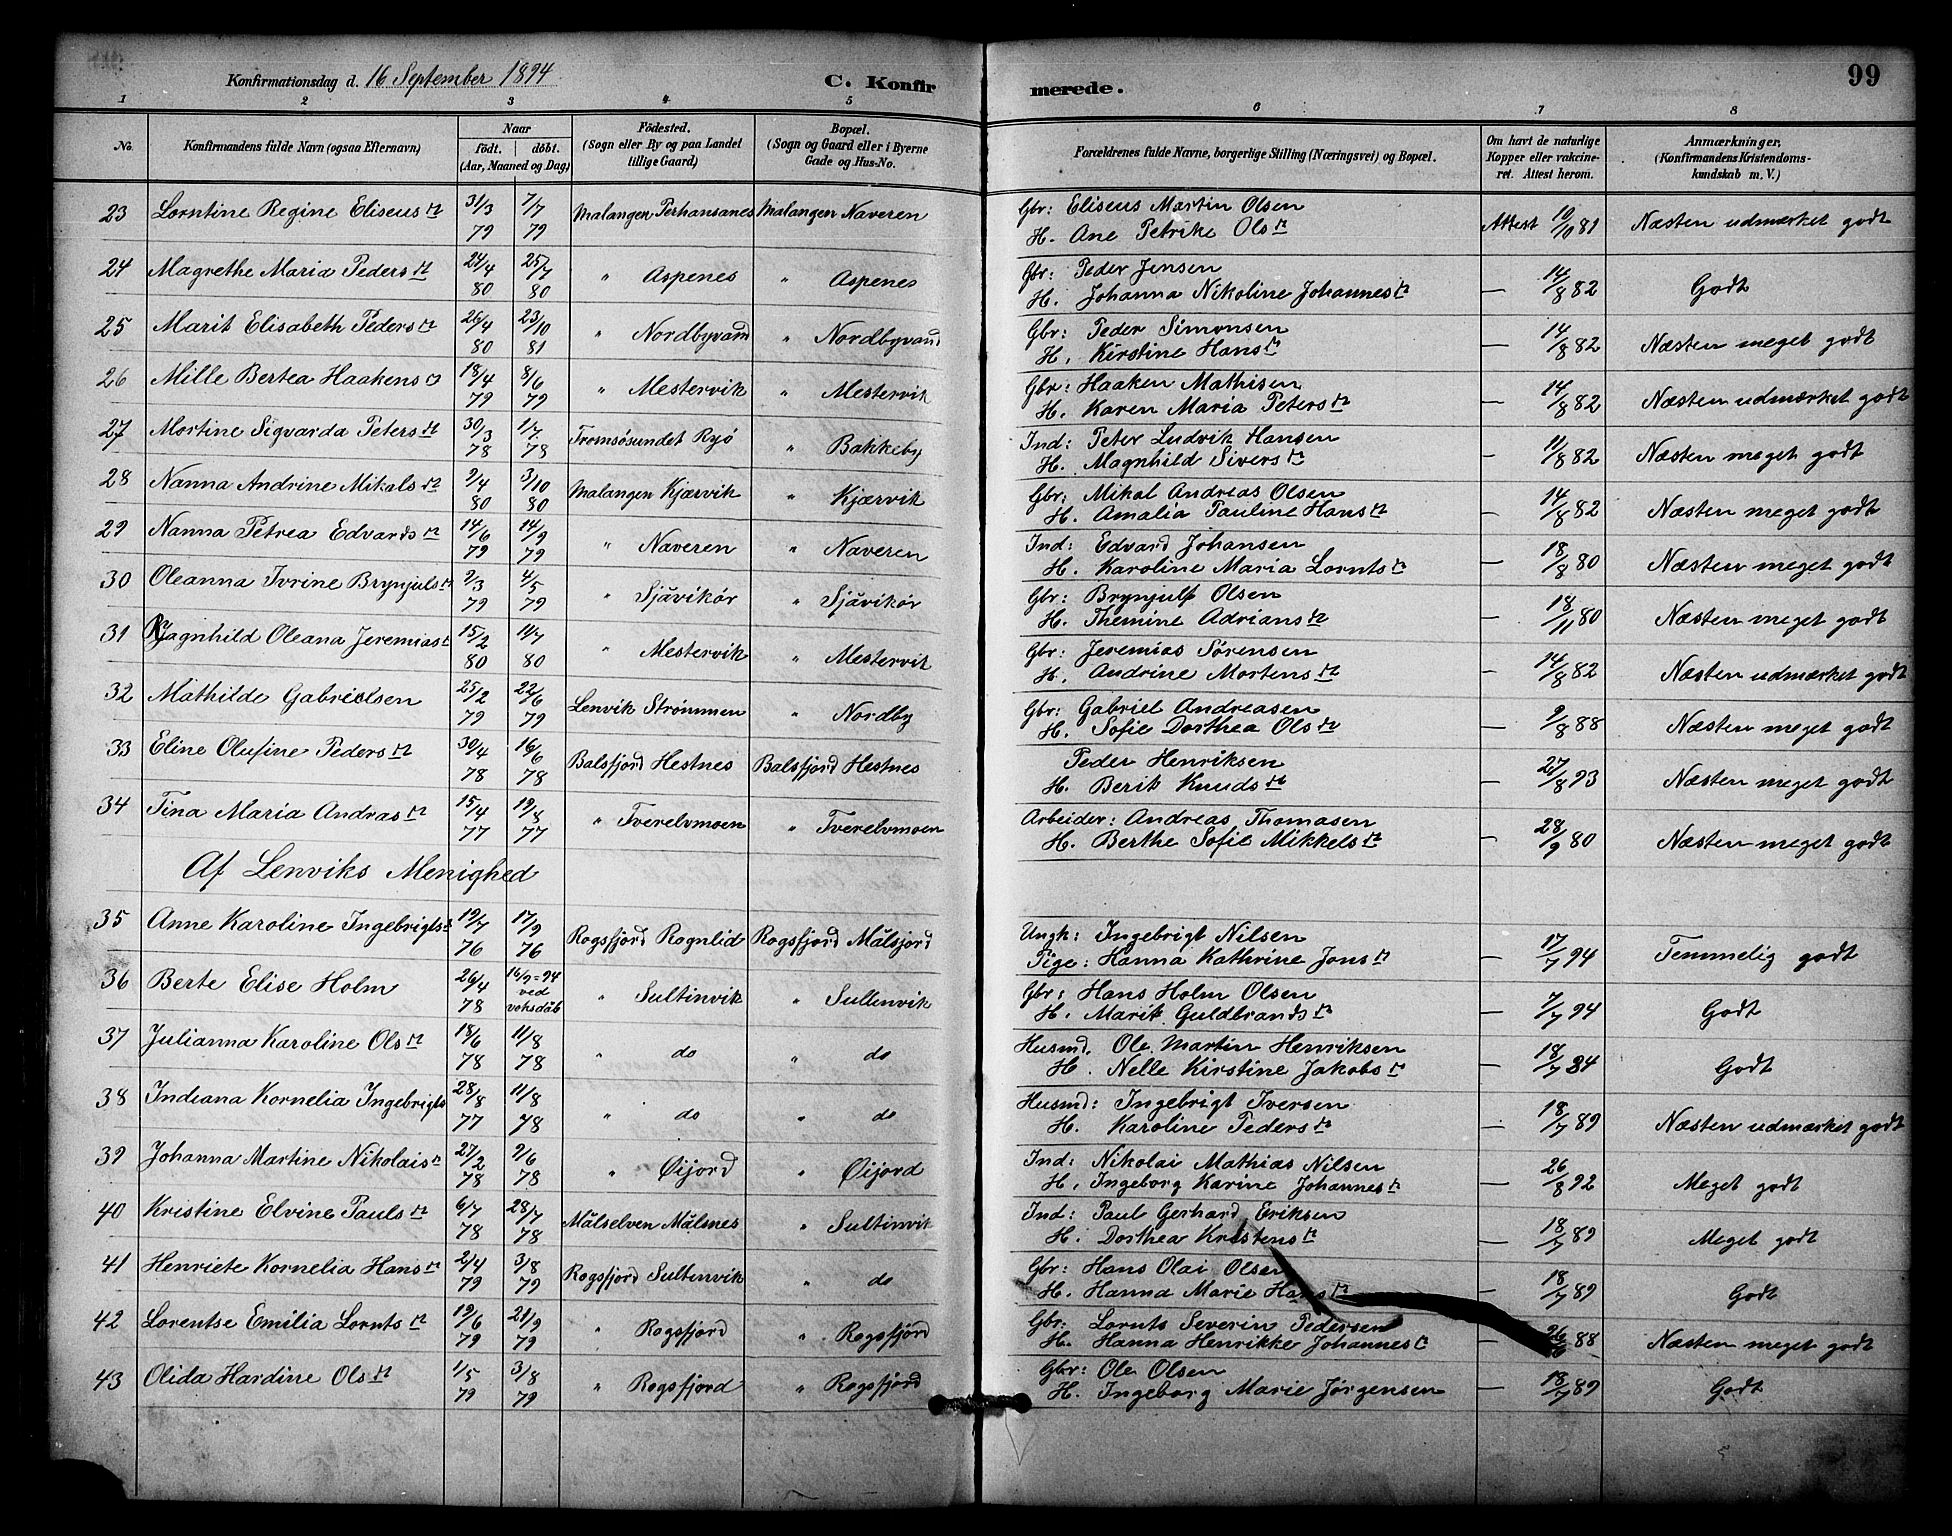 Konfirmationsdag d. 16 September 1894
C. Konfirmerede.
99
1 2 3 4 5 6 7 8
No.
Konfirmandens fulde Navn (ogsaa Efternavn)
Naar
födt. döbt.
(Aar, Maaned og Dag)
Födested.
(Sogn eller By og paa Landet
tillige Gaard)
Bopæl.
(Sogn og Gaard eller i Byerne
Gade og Hus-No.
Forældrenes fulde Navne, borgerlige Stilling (Næringsvei) og Bopæl.
Om havt de naturlige
Kopper eller vakcine-
ret. Attest herom.
Anmærkninger.
(Konfirmandens Kristendoms-
kundskab m. V.)
23 Lorntine Regine Eliseus dt 31/3 79 1/7 79 Malangen Perhansanes Malangen Naveren Gbr: Eliseus Martin Olsen
H. Ane Petrike Ols dt Attest 10/10 81 Næsten udmærket godt
24 Magrethe Maria Peders dt 24/4 80 25/7 80 " Aspenes " Aspenes Gbr: Peder Jensen
H. Johanna Nikoline Johannes dt — 14/8 82 Godt
25 Marit Elisabeth Peders dt 26/4 80 23/10 81 " Nordbyvand " Nordbyvand Gbr: Peder Simonsen
H. Kirstine Hans dt — 14/8 82 Næsten meget godt
26 Mille Bertea Haakens dt 18/4 79 8/6 79 " Mestervik " Mestervik Gbr: Haaken Mathisen
H. Karen Maria Peters dt — 14/8 82 Næsten udmærket godt
27 Mortine Sigvarda Peters dt 30/3 78 1/7 78 Tromsøsundet Ryö " Bakkeby Ind: Peter Ludvik Hansen
H. Magnhild Sivers dt — 11/8 82 Næsten meget godt
28 Nanna Andrine Mikals dt 2/4 80 3/10 80 Malangen Kjærvik " Kjærvik Gbr: Mikal Andreas Olsen
H. Amalia Pauline Hans dt — 14/8 82 Næsten meget godt
29 Nanna Petrea Edvards dt 14/6 79 14/9 79 " Naveren " Naveren Ind: Edvard Johansen
H. Karoline Maria Lornts dt — 18/8 80 Næsten meget godt
30 Oleanna Ivrine Brynjuls dt 2/3 79 4/5 79 " Sjåvikör " Sjåvikör Gbr: Brynjulf Olsen
H. Themine Adrians dt — 18/11 80 Næsten meget godt
31 Ragnhild Oleana Jeremias dt 15/2 80 11/7 80 " Mestervik " Mestervik Gbr: Jeremias Sørensen
H. Andrine Mortens dt — 14/8 82 Næsten udmærket godt
32 Mathilde Gabrielsen 25/2 79 22/6 79 Lenvik Strømmen " Nordby Gbr: Gabriel Andreasen
H. Sofie Dorthea Ols dt — 9/8 88 Næsten meget godt
33 Eline Olufine Peders dt 30/4 78 16/6 78 Balsfjord Hestnes Balsfjord Hestnes Peder Henriksen
H. Berit Knuds dt — 27/8 93 Næsten meget godt
34 Tina Maria Andras dt 15/4 77 19/8 77 " Tverelvmoen " Tverelvmoen Arbeider: Andreas Thomasen
H. Berthe Sofie Mikkels dt — 28/9 80 Næsten meget godt
Af Lenviks Menighed
35 Anne Karoline Ingebrigts dt 19/7 76 17/9 76 Rogsfjord Rognlid Rogsfjord Målsjord Ungk: Ingebrigt Nilsen
Pige: Hanna Kathrine Jons dt — 17/7 94 Temmelig godt
36 Berte Elise Holm 26/4 78 16/9=94 ved voksdåb " Sultinvik " Sultenvik Gbr: Hans Holm Olsen
H. Marit Guldbrands dt — 7/7 94 Godt
37 Julianna Karoline Ols dt 18/6 78 11/8 78 " do " do Husmd. Ole Martin Henriksen
H. Nelle Kirstine Jakobs dt — 18/7 84 Godt
38 Indiana Kornelia Ingebrigts 28/8 77 11/8 78 " do " do Husmd: Ingebrigt Iversen
H. Karoline Peders dt — 18/7 89 Næsten udmærket godt
39 Johanna Martine Nikolais dt 27/2 78 9/6 78 " Øijord " Øijord Ind: Nikolai Mathias Nilsen
H. Ingeborg Karine Johannes dt — 26/8 92 Meget godt
40 Kristine Elvine Pauls dt 6/7 78 28/7 78 Målselven Målsnes " Sultinvik Ind: Paul Gerhard Eriksen
H. Dorthea Kristens dt — 18/7 89 Meget godt
41 Henriete Kornelia Hans dt 2/4 79 3/8 79 Rogsfjord Sultenvik " do Gbr: Hans Olai Olsen
H. Hanna Marie Hans dt — 18/7 89 Godt
42 Lorentse Emilia Lornts dt 19/6 79 21/9 79 " Rogsfjord " Rogsfjord Gbr: Lornts Severin Pedersen
H. Hanna Henrikke Johannes dt — 88 Næsten meget godt
43 Olida Hardine Ols dt 1/5 79 3/8 79 " Rogsfjord " Rogsfjord Gbr: Ole Olsen
H. Ingeborg Marie Jørgensen — 18/7 89 Godt